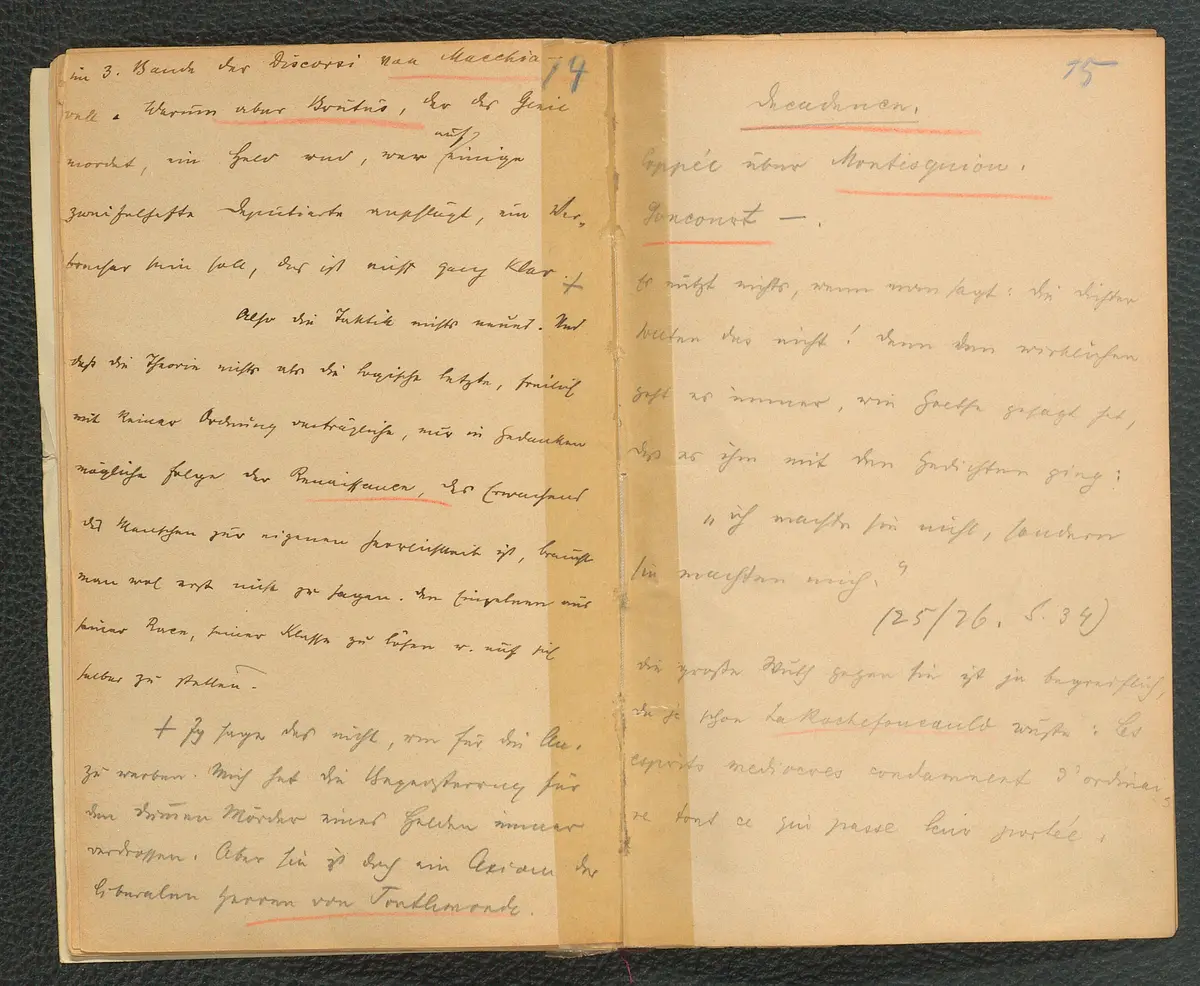 14
im 3. Bande der Discorsi von Macchia-
vell. Warum aber Brutus, der das Genie
mordet, ein Held und, wer auf einige
zweifelhafte Deputierte anschlägt, ein Ver-
brecher sein soll, das ist nicht ganz klar. +
Also die Taktik nichts neues. Und
daß die Theorie nichts als die logische letzte, freilich
mit keiner Ordnung verträgliche, nur in Gedanken
mögliche Folge der Renaissance, des Erwachens
des Menschen zur eigenen Herrlichkeit ist, braucht
man wol erst nicht zu sagen. Den Einzelnen aus
seiner Race, seiner Klasse zu lösen u. auf sich
selber zu stellen.
+ Ich sage das nicht, um für die An.
zu werben. Mich hat die Begeisterung für
den dummen Mörder eines Helden immer
verdrossen. Aber sie ist doch ein Axiom der
liberalen Herren von Toutlemonde.
15
Decadence.
Coppée über Montesquiou.
Goncourt —.
Es nützt nichts, wenn man sagt: die Dichter
sollten das nicht! Denn dem wirklichen
geht es immer, wie Goethe gesagt hat,
daß es ihm mit den Gedichten ging:
„ich machte sie nicht, sondern
sie machten mich.“
(25/26. S. 34)
Die große Wuth gegen sie ist ja begreiflich,
da ja schon La Rochefoucauld wußte: Les
esprits mediocres condamnent d'ordinai-
re tout ce qui passe leur portée.